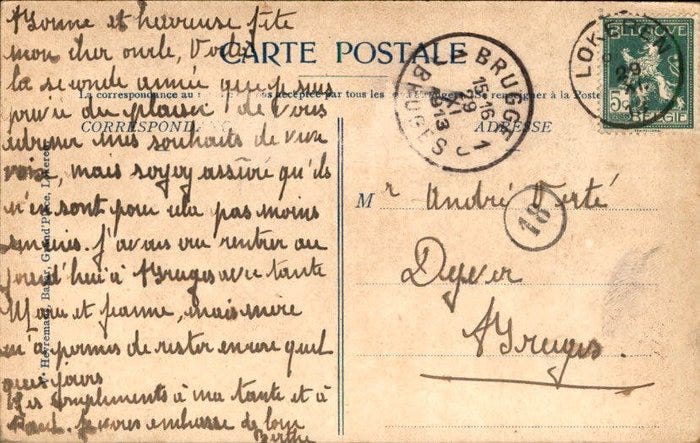 Bonne et heureuse fête
mon cher oncle, Voilà
la seconde année que je suis
privée du plaisir de vous
adresser mes souhaits de vive
voix, mais soyez assuré qu'ils
n'en sont pour cela pas moins
sincères. J'avais cru rentrer au
jourd'hui à Bruges avec tante
Marie et Jeanne, mais mère
m'a permis de rester encore quel
ques jours
Mes compliments à ma tante et à
Paul. Je vous embrasse de loin
Berthe
CARTE POSTALE
La correspondance au
pas acceptée par tous les
se renseigner à la Poste
CORRESPONDANCE
ADRESSE
Mr André Verté
Dyver
Bruges
18
BRUGGE 1
15-16
29
XI
1913
BRUGES 1
LOKEREN
29
BELGIQUE
5c
BELGIË
Heyvremans, Bazar, Grand'Place, Lokeren